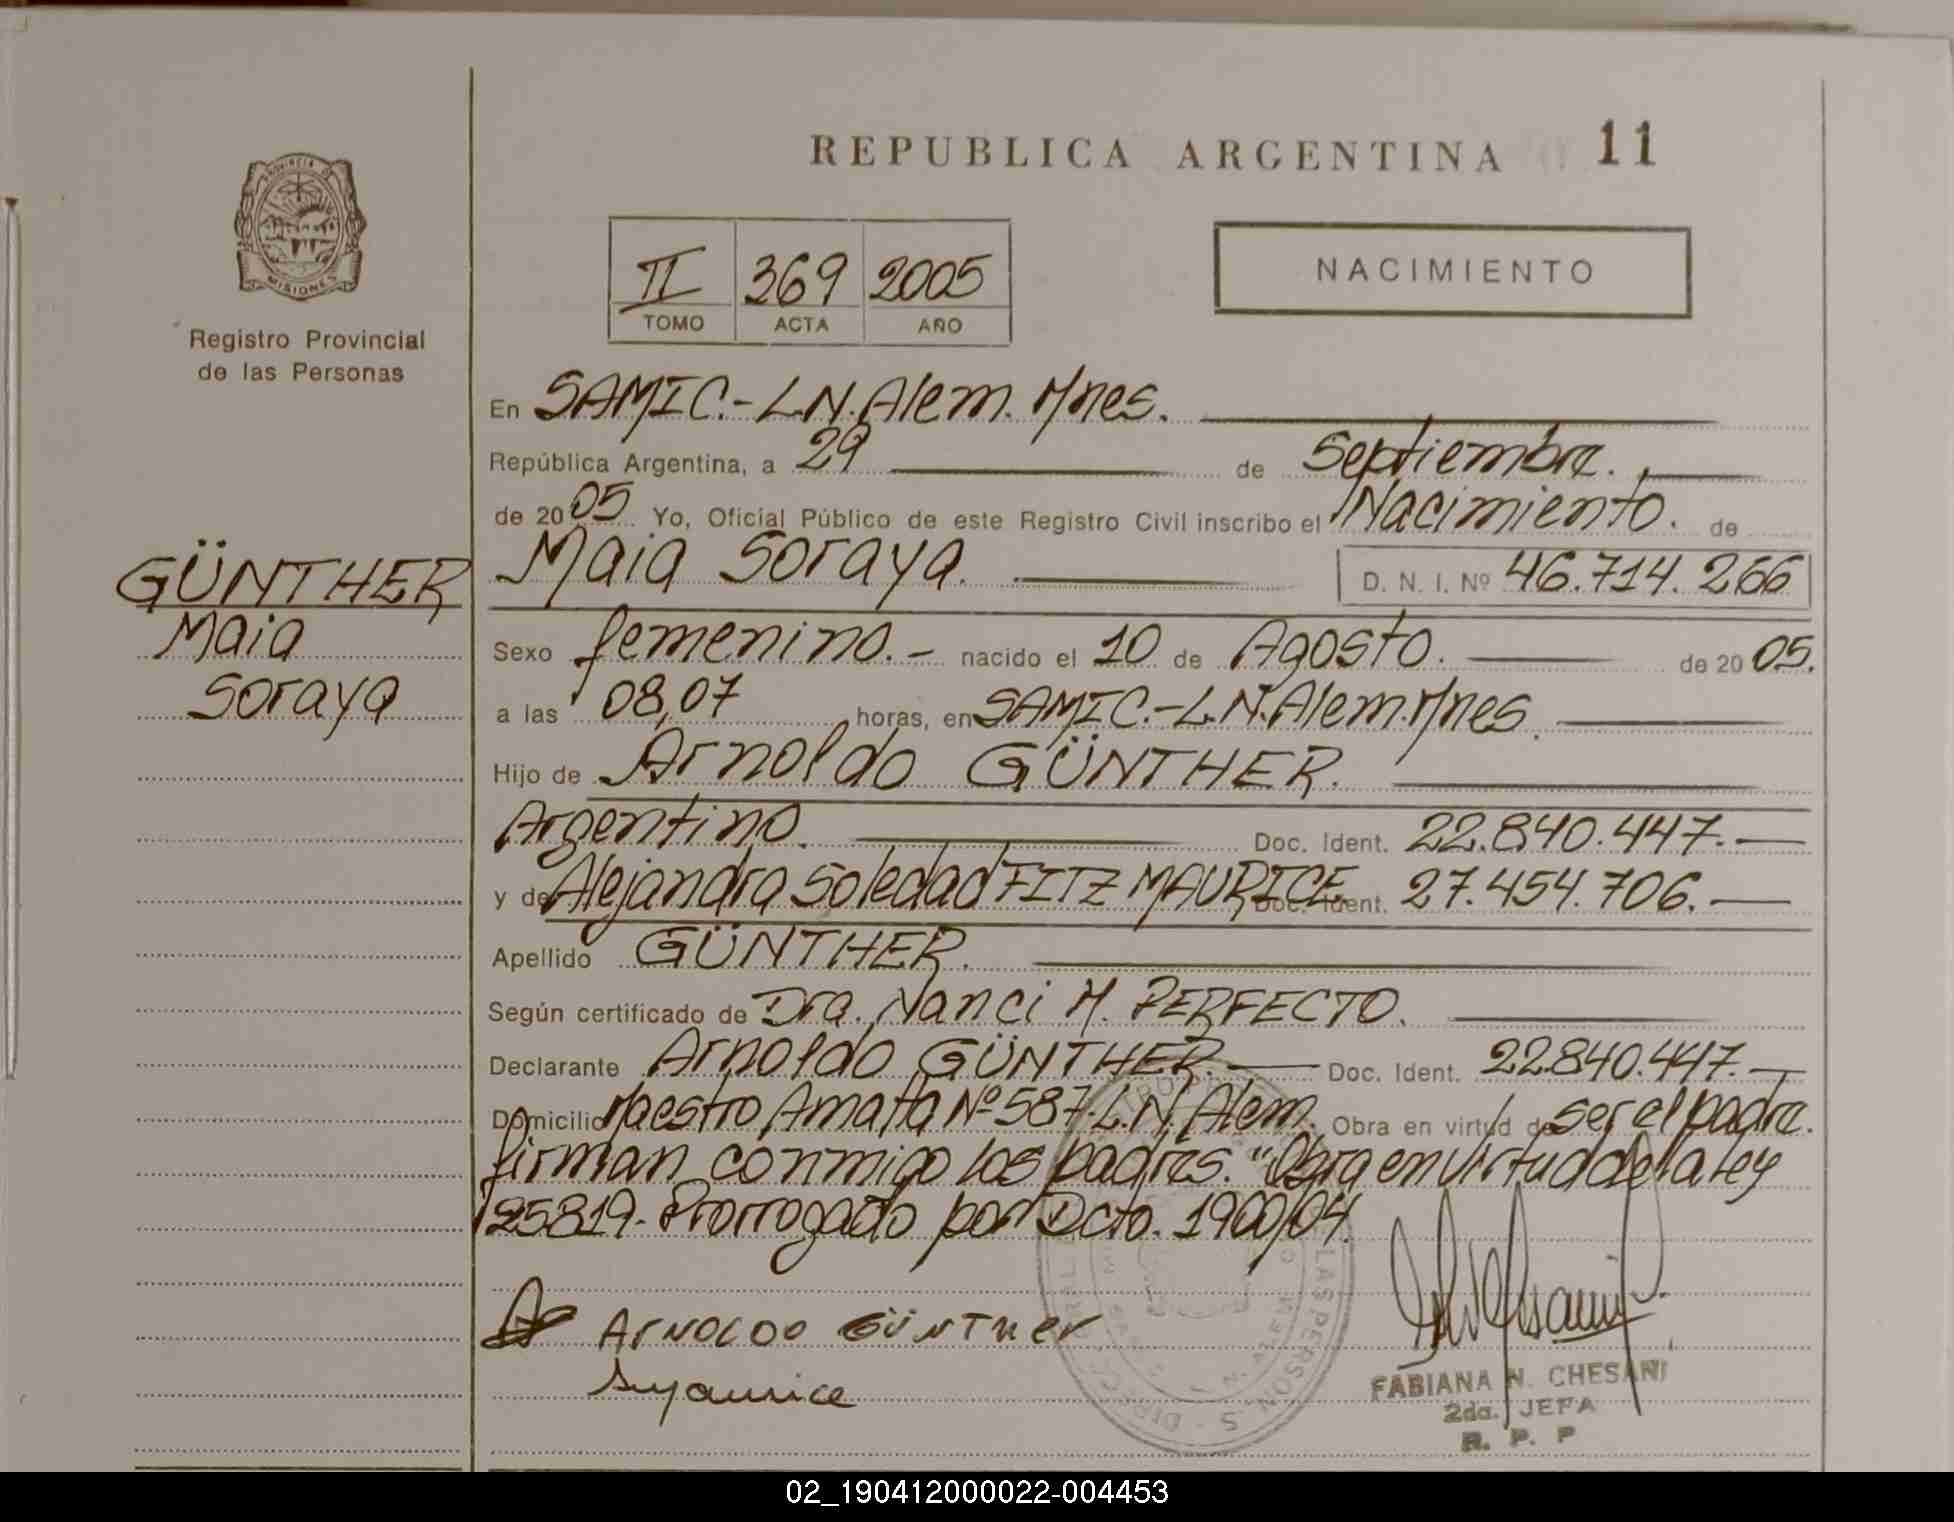 REPUBLICA ARGENTINA 11
PROVINCIA DE
MISIONES
Registro Provincial
de las Personas
II 369 2005
TOMO ACTA AÑO
NACIMIENTO
En SAMIC.- L.N. Alem. Mnes.
República Argentina, a 29 de Septiembre.
de 2005 Yo, Oficial Público de este Registro Civil inscribo el Nacimiento. de
GÜNTHER
Maia
Soraya
Maia Soraya. D. N. I. Nº 46.714.266
Sexo femenino.- nacido el 10 de Agosto. de 2005.
a las 08,07 horas, en SAMIC.- L.N. Alem. Mnes.
Hijo de Arnoldo GÜNTHER.
Argentino. Doc. Ident. 22.840.447.-
y de Alejandra Soledad FITZ MAURICE. Doc. Ident. 27.454.706.-
Apellido GÜNTHER.
Según certificado de Dra. Nanci M. PERFECTO.
Declarante Arnoldo GÜNTHER.- Doc. Ident. 22.840.447.-
Domicilio Maestro Amatta Nº 587.- L.N. Alem. Obra en virtud de ser el padre.
firman conmigo los padres. "Obra en virtud de la ley
25819.- Prorrogado por Dcto. 1900/04.
ARNOLDO GÜNTHER
FABIANA N. CHESANI
2da. JEFA
R. P. P
02_190412000022-004453